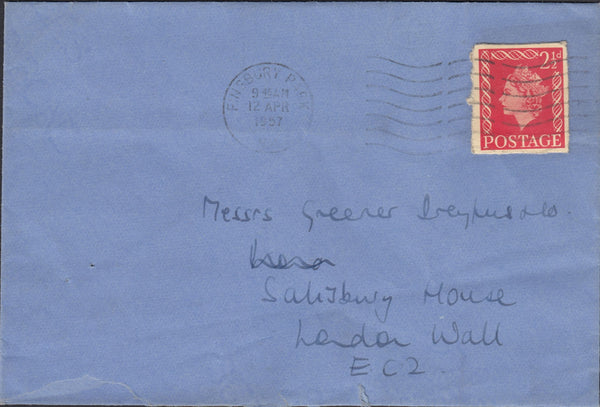 FINSBURY PARK
9 45 AM
12 APR
1957
2½d
POSTAGE
Messrs Greener Dreyfus & Co.
Salisbury House
London Wall
E C 2.